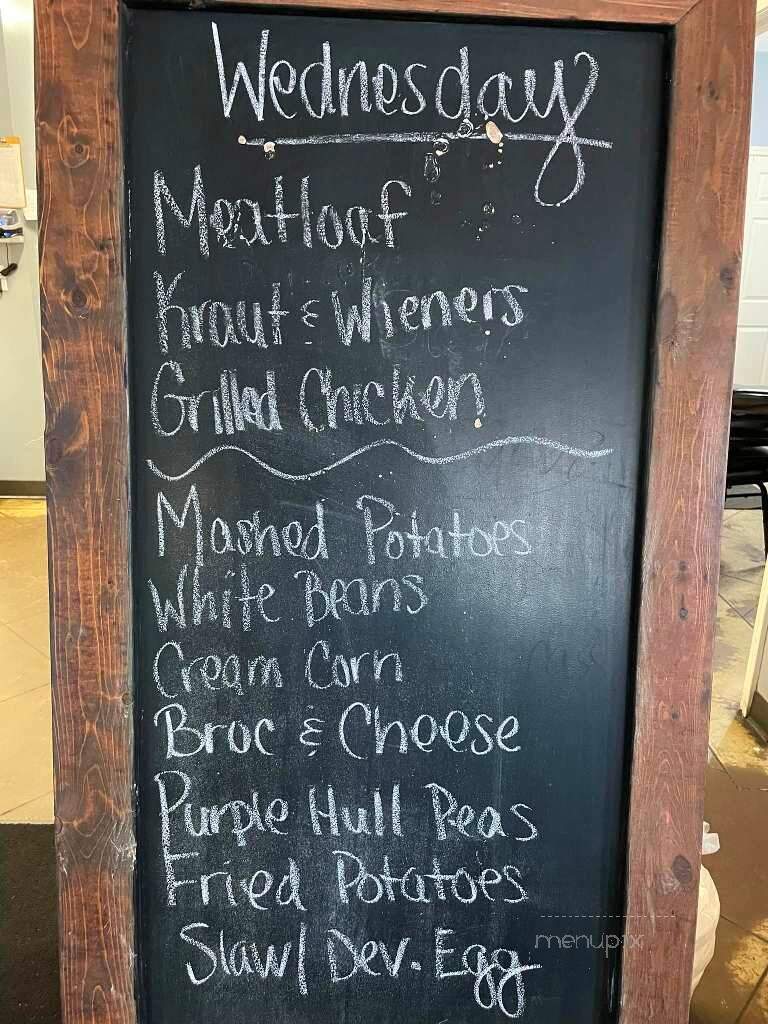 Wednesday
Meatloaf
Kraut & Wieners
Grilled Chicken
Mashed Potatoes
White Beans
Cream Corn
Broc & Cheese
Purple Hull Peas
Fried Potatoes
Slaw/ Dev. Egg
menupix